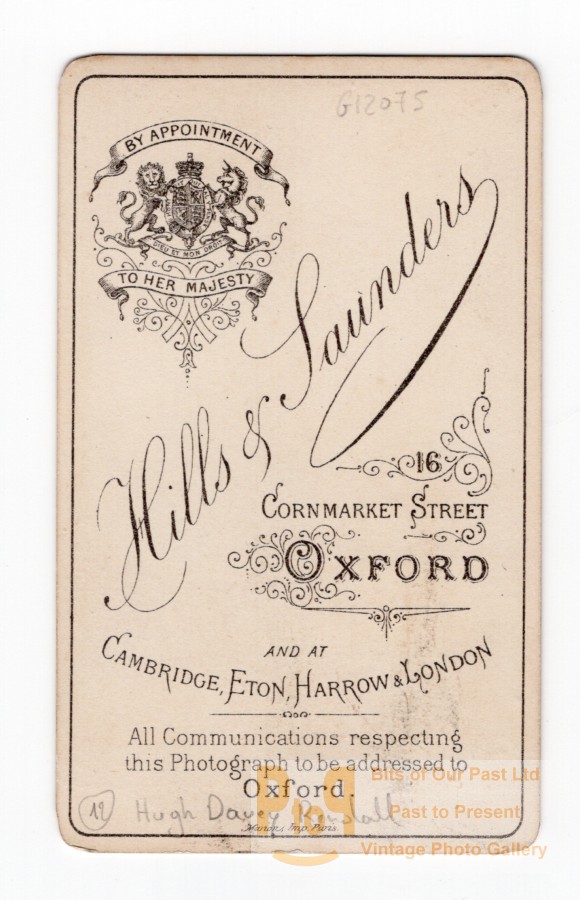 G12075
BY APPOINTMENT
DIEU ET MON DROIT
TO HER MAJESTY
Hills & Saunders
16
CORNMARKET STREET
OXFORD
AND AT
CAMBRIDGE, ETON, HARROW & LONDON
All Communications respecting
this Photograph to be addressed to
Oxford.
12 Hugh Davey
Imp. Paris
Bits of Our Past Ltd
Past to Present
Vintage Photo Gallery